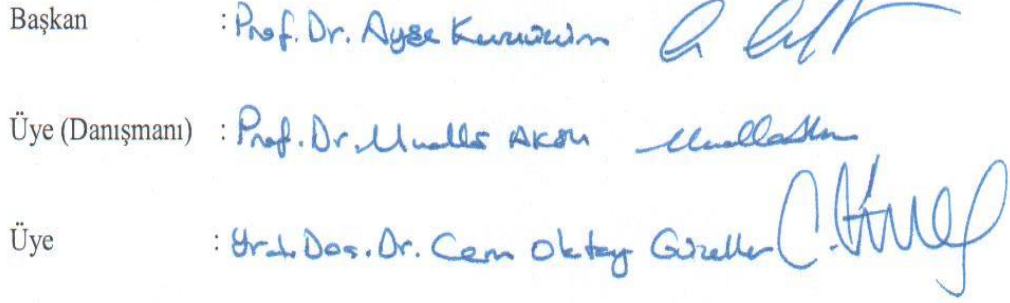 Başkan : Prof. Dr. Ayşe
Üye (Danışmanı) : Prof. Dr. Mualla Aksu
Üye : Yrd. Doç. Dr. Cem Oktay Güzeller